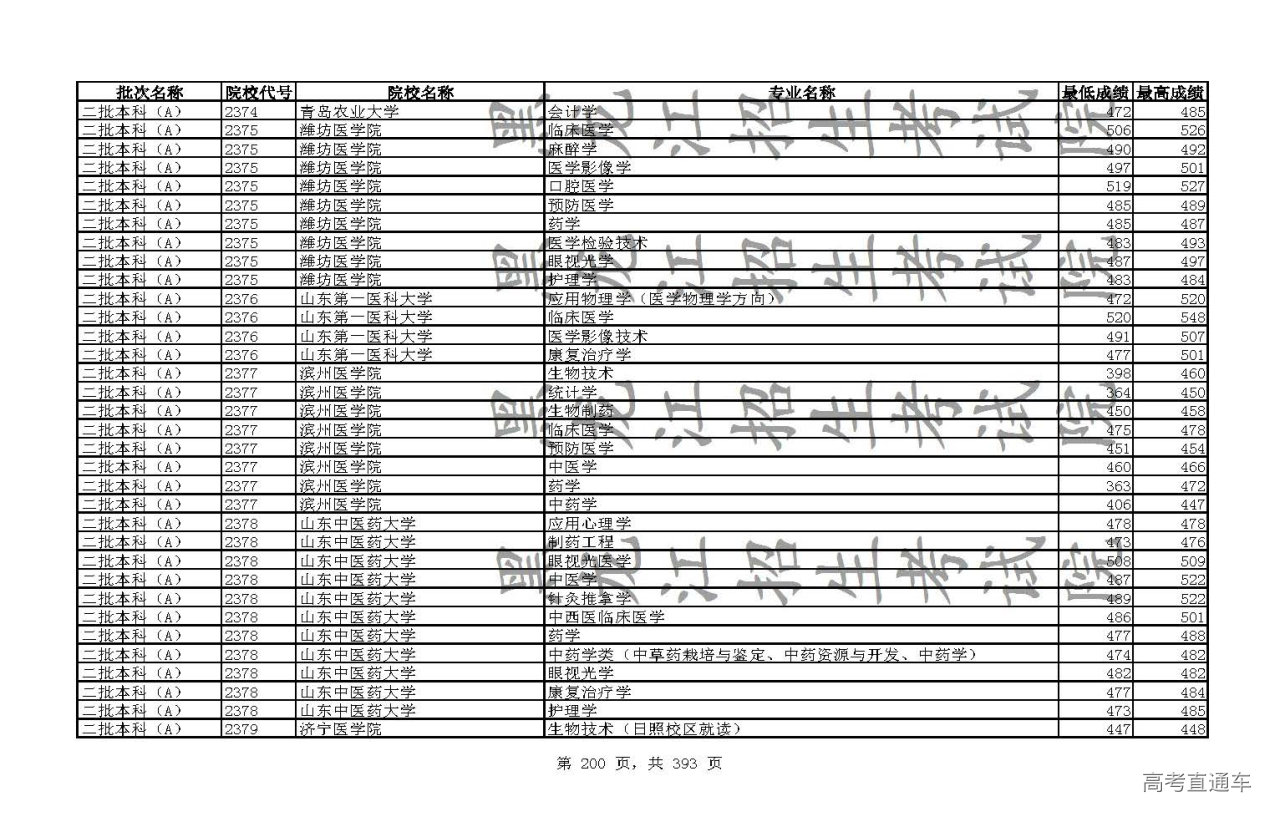 批次名称 院校代号 院校名称 专业名称 最低成绩 最高成绩
二批本科（A） 2374 青岛农业大学 会计学 472 485
二批本科（A） 2375 潍坊医学院 临床医学 506 526
二批本科（A） 2375 潍坊医学院 麻醉学 490 492
二批本科（A） 2375 潍坊医学院 医学影像学 497 501
二批本科（A） 2375 潍坊医学院 口腔医学 519 527
二批本科（A） 2375 潍坊医学院 预防医学 485 489
二批本科（A） 2375 潍坊医学院 药学 485 487
二批本科（A） 2375 潍坊医学院 医学检验技术 483 493
二批本科（A） 2375 潍坊医学院 眼视光学 487 497
二批本科（A） 2375 潍坊医学院 护理学 483 484
二批本科（A） 2376 山东第一医科大学 应用物理学（医学物理学方向） 472 520
二批本科（A） 2376 山东第一医科大学 临床医学 520 548
二批本科（A） 2376 山东第一医科大学 医学影像技术 491 507
二批本科（A） 2376 山东第一医科大学 康复治疗学 477 501
二批本科（A） 2377 滨州医学院 生物技术 398 460
二批本科（A） 2377 滨州医学院 统计学 364 450
二批本科（A） 2377 滨州医学院 生物制药 450 458
二批本科（A） 2377 滨州医学院 临床医学 475 478
二批本科（A） 2377 滨州医学院 预防医学 451 454
二批本科（A） 2377 滨州医学院 中医学 460 466
二批本科（A） 2377 滨州医学院 药学 363 472
二批本科（A） 2377 滨州医学院 中药学 406 447
二批本科（A） 2378 山东中医药大学 应用心理学 478 478
二批本科（A） 2378 山东中医药大学 制药工程 473 476
二批本科（A） 2378 山东中医药大学 眼视光医学 508 509
二批本科（A） 2378 山东中医药大学 中医学 487 522
二批本科（A） 2378 山东中医药大学 针灸推拿学 489 522
二批本科（A） 2378 山东中医药大学 中西医临床医学 486 501
二批本科（A） 2378 山东中医药大学 药学 477 488
二批本科（A） 2378 山东中医药大学 中药学类（中草药栽培与鉴定、中药资源与开发、中药学） 474 482
二批本科（A） 2378 山东中医药大学 眼视光学 482 482
二批本科（A） 2378 山东中医药大学 康复治疗学 477 484
二批本科（A） 2378 山东中医药大学 护理学 473 485
二批本科（A） 2379 济宁医学院 生物技术（日照校区就读） 447 448
黑龙江招生考试院
黑龙江招生考试院
黑龙江招生考试院
黑龙江招生考试院
第 200 页，共 393 页
高考直通车